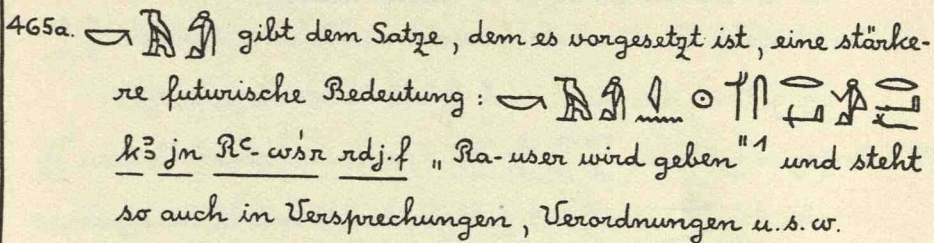 465a. 𓎡𓄿𓀁 gibt dem Satze, dem es vorgesetzt ist, eine stärke-
re futurische Bedeutung: 𓎡𓄿𓀁𓇋𓈖𓇳𓄊𓋴𓂋
kꜣ jn Rꜥ-wśr rdj.f „Ra-user wird geben"¹ und steht
so auch in Versprechungen, Verordnungen u.s.w.